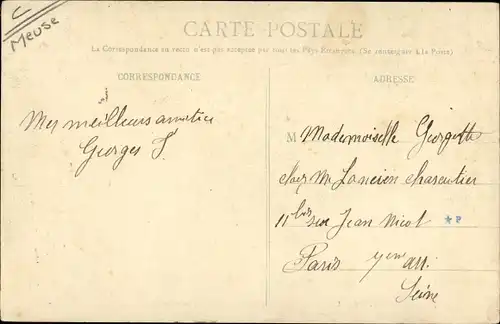 C
Meuse
CARTE POSTALE
La Correspondance au recto n'est pas acceptée par tous les Pays Étrangers. (Se renseigner à la Poste)
CORRESPONDANCE
ADRESSE
Mes meilleurs amitiés
Georges F.
M Mademoiselle Georgette
chez Mr Lancien charcutier
11 bis rue Jean Nicot
Paris 7eme arr.
Seine